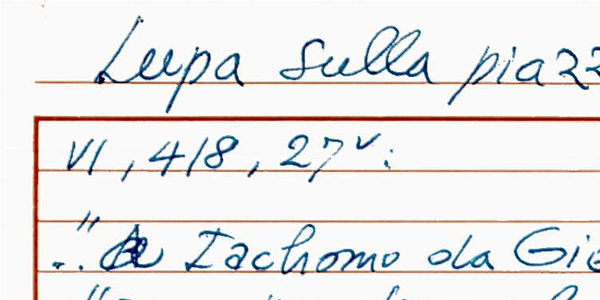 Lupa sulla piazz
VI, 418, 27v:
..." A Iachomo da Gio